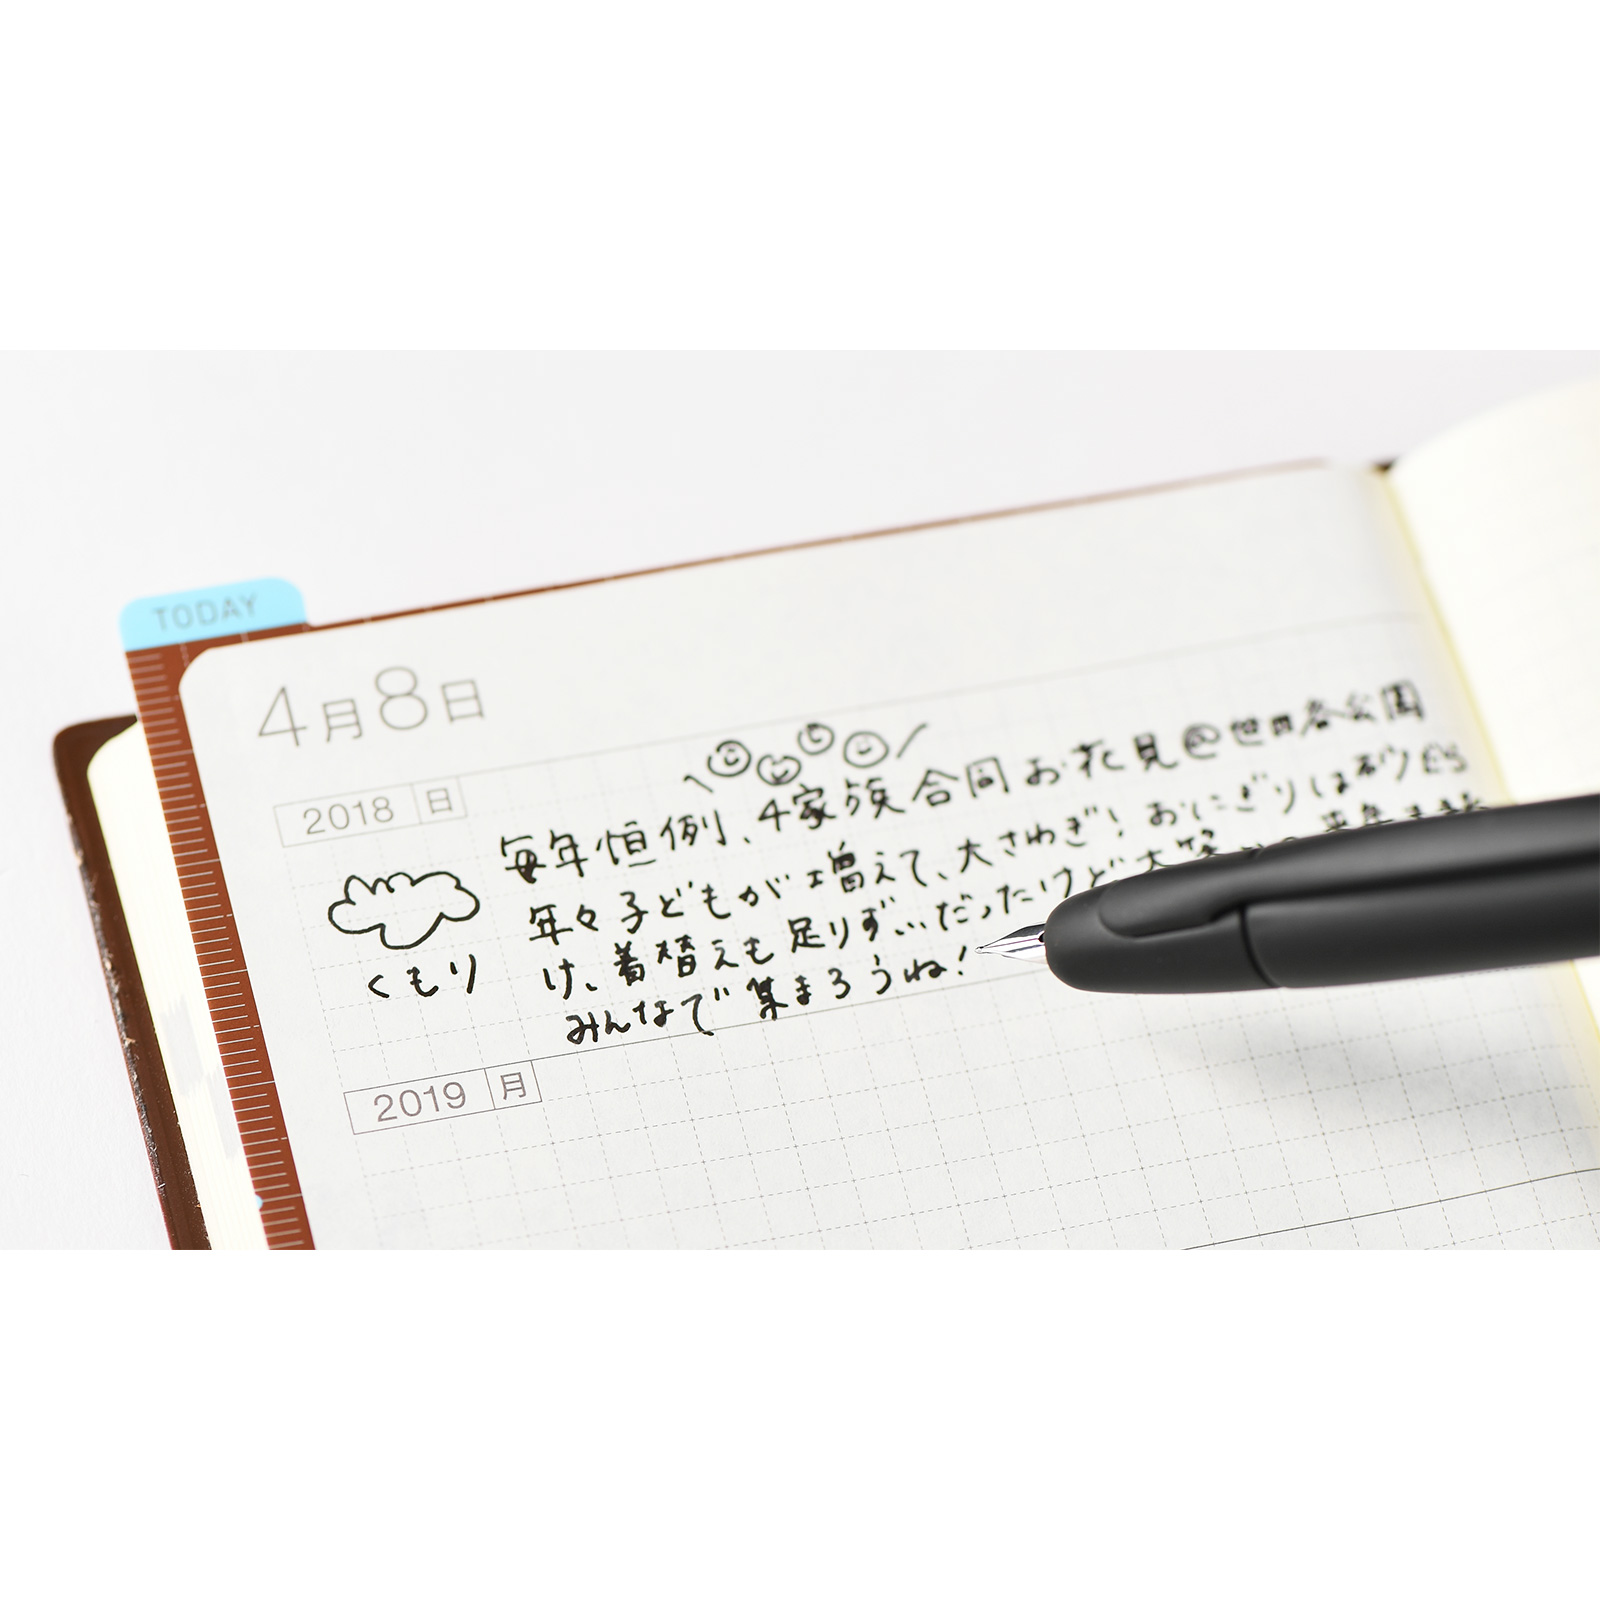 TODAY
4月8日
2018 日
毎年恒例、4家族合同お花見@世田谷公園
年々子どもが増えて、大さわぎ!おにぎりは砂だらけ、
着替えも足りずじまいだったけど大笑
みんなで集まろうね!
くもり
2019 月